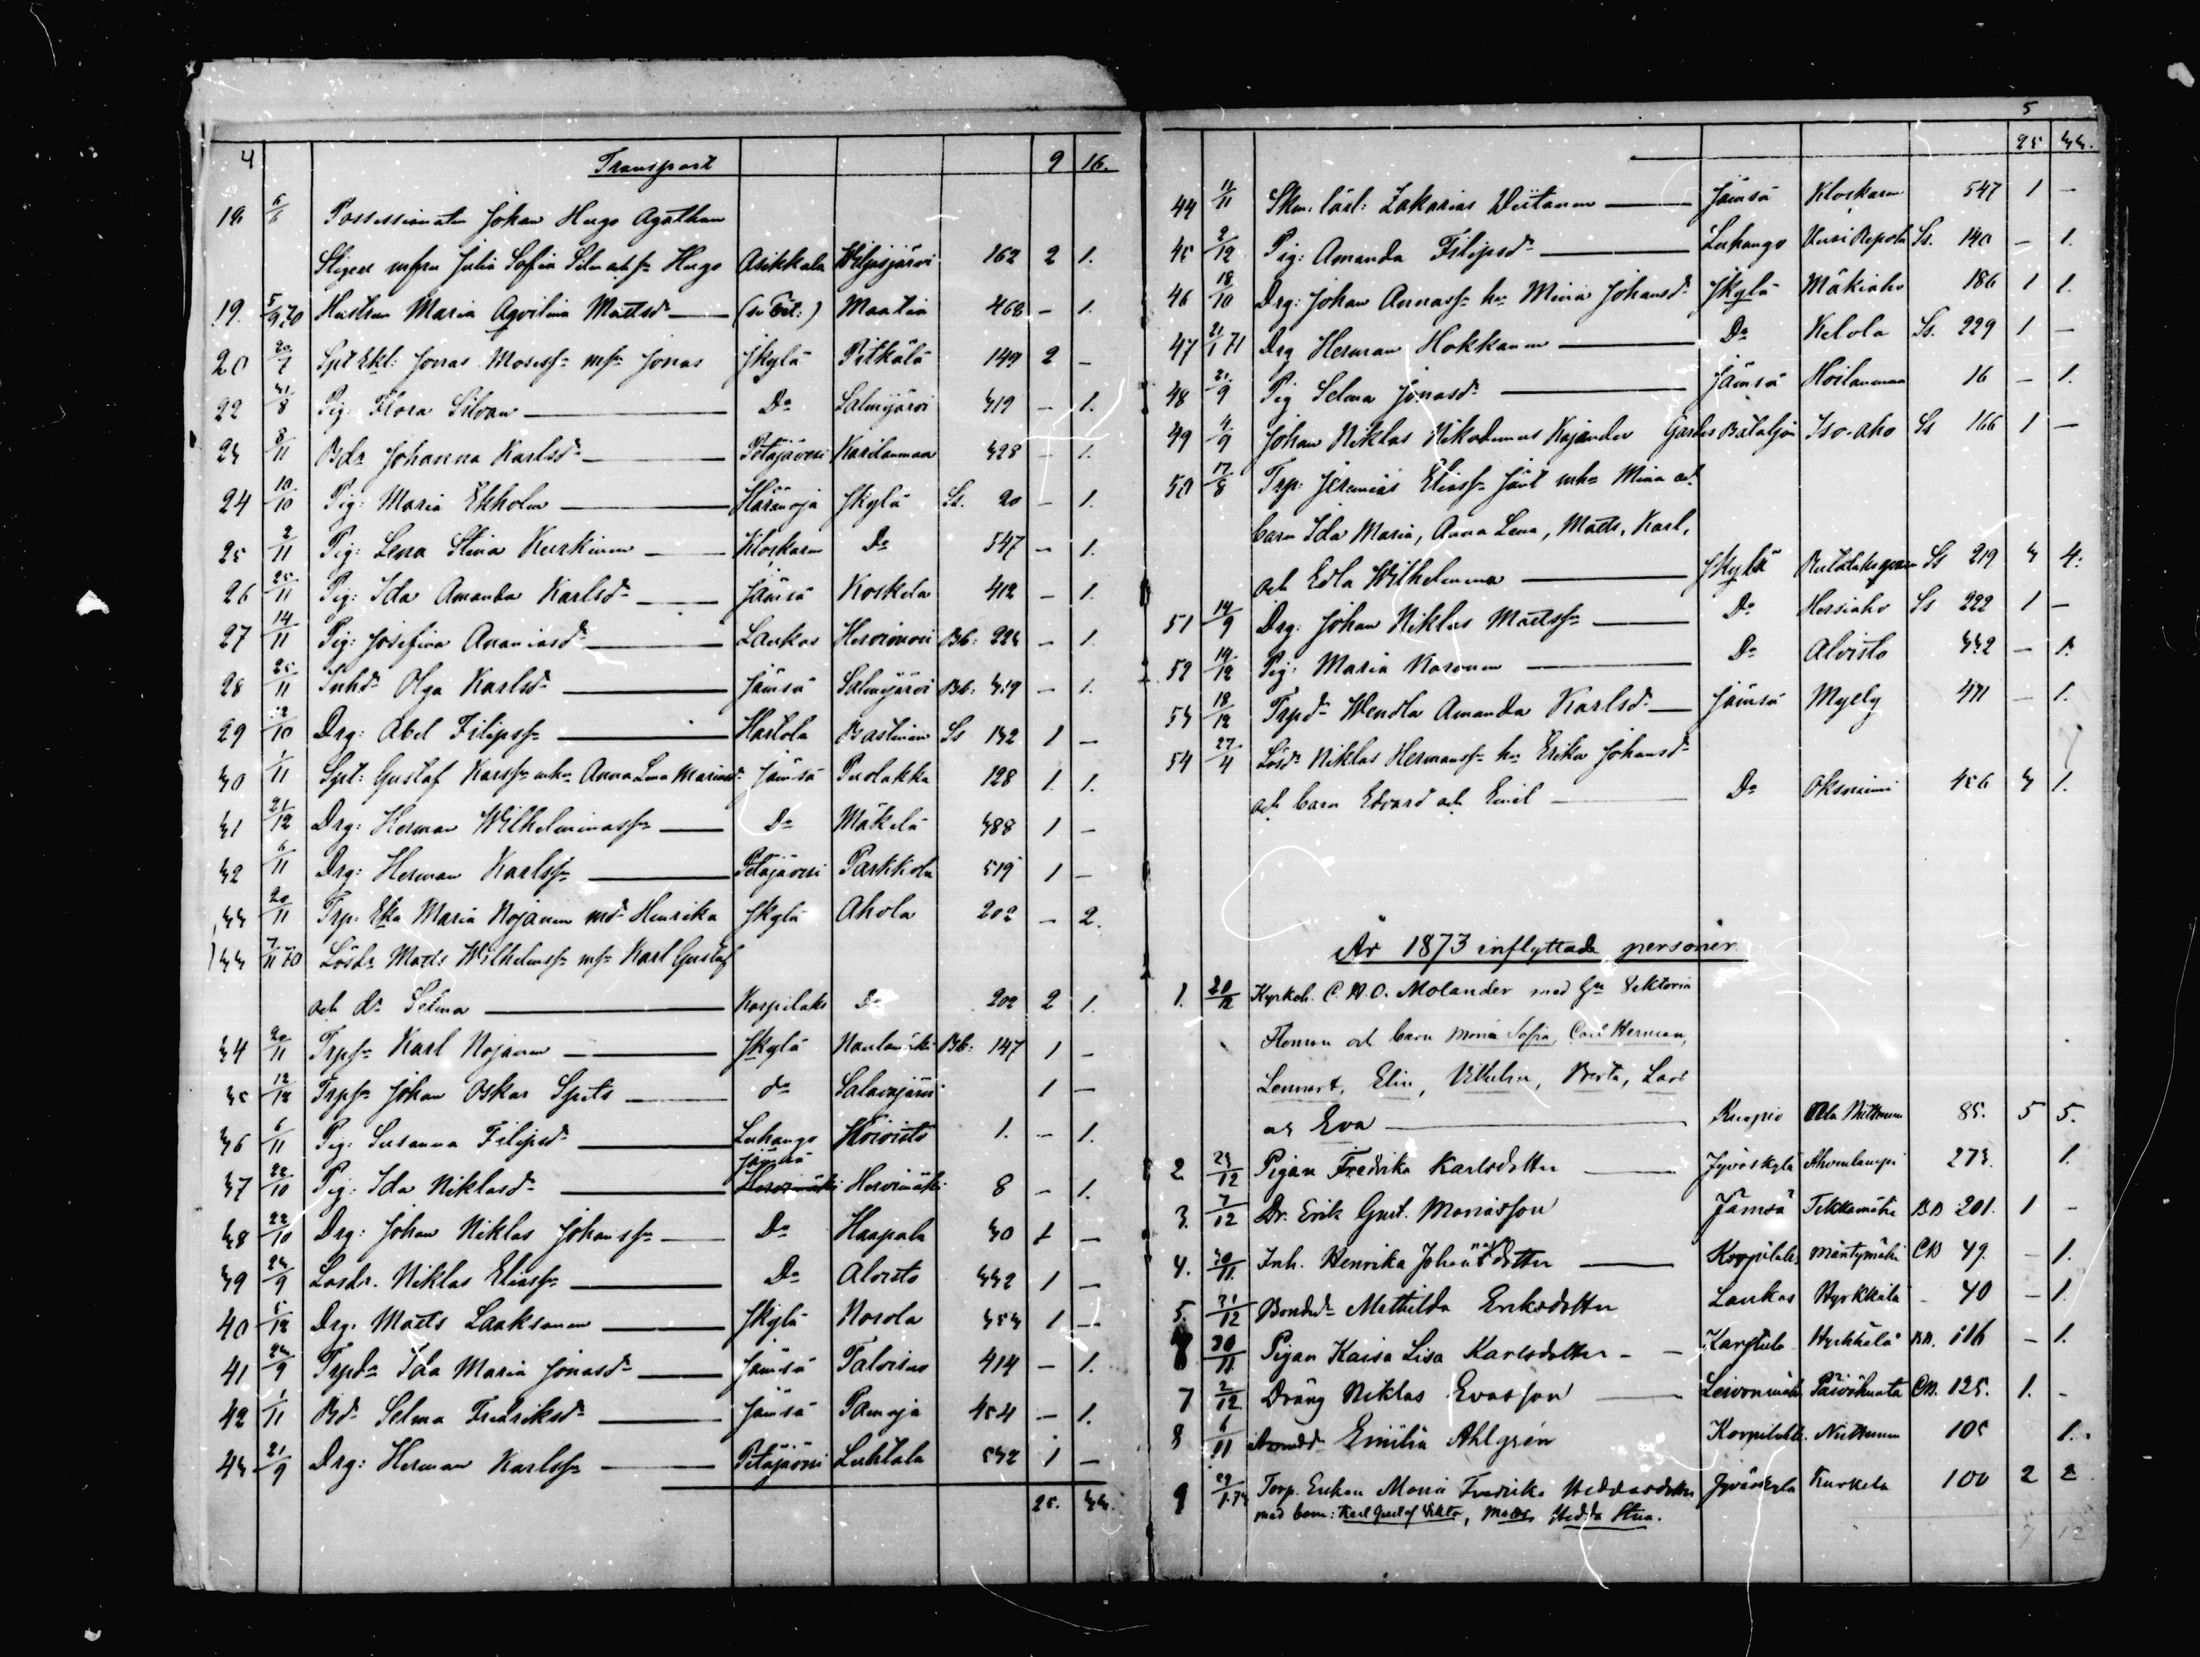 4 Transport 9 16.
18 6/6 Possessionaten Johan Hugo Agathon
Stigell Julia Sofia Hugo Asikkala Wiljusjärvi 162 2 1.
19. 5/9 70 Hustrun Maria Agvilina Mattsdr Maatia 468 - 1.
20 20/7 Jonas Mosessn Jonas Jkylä Pitkälä 149 2 -
22 31/8 Pig: Flora Silvan Do Salmijärvi 319 - 1.
23 8/11 Bdr Johanna Karlsdr Petäjävesi Karilanmaa 328 - 1.
24 10/10 Pig: Maria Ekholm Häränoja Jkylä Ss. 20 - 1.
25 2/11 Pig: Lena Stina Kurkinen Kloskarn Do 547 - 1.
26 25/11 Pig: Ida Amanda Karlsdr Jämsä Koskela 412 - 1.
27 14/11 Pig: Josefina Ananiasdr Laukas Bb: 223 - 1.
28 25/11 Inhdr Olga Karlsdr Jämsä Salmijärvi Bb: 319 - 1.
29 12/10 Drg: Abel Filipssn Hartola Bastman Ss 132 1 -
30 1/11 Gustaf Anna Lena Jämsä Puolakka 128 1. 1.
31 21/12 Drg: Herman Wilhelminassn Do Mäkelä 388 1 -
32 6/11 Drg: Herman Karlssn Petäjävesi Parkkola 519 1 -
33 20/11 Trp: Eka Maria Nojanen md Henrika Jkylä Ahola 202 - 2.
33 7/11 70 Lösdr Matts Wilhelmssn Karl Gustaf
och dr Selma Korpilaks Do 202 2 1.
34 20/11 Trpsn Karl Nojanen Jkylä Naulamäki Bb: 147 1 -
35 12/12 Trpsn Johan Oskar Spets do Salmijärvi 1 -
36 6/11 Pig: Susanna Filipsdr Luhango Koivisto 1. - 1.
Jämsä
37 22/10 Pig: Ida Niklasdr Hervimäki Hervimäki 8 - 1.
38 22/10 Drg: Johan Niklas Johanssn Do Haapala 30 1 -
39 23/9 Losdr. Niklas Eliassn Do Alvisto 332 1 -
40 5/12 Drg. Matts Laaksonen Jkylä Norola 353 1 -
41 23/9 Trpdr Ida Maria Jonasdr Jämsä Talvisno 414 - 1.
42 1/11 Bdr Selma Fredriksdr Jämsä Pamoja 454 - 1.
43 21/9 Drg: Herman Karlssn Petäjävesi Luhtala 532 1 -
25. 33.
5
25 33.
44 11/11 Skm: lärl: Zakarias Wiitanen Jämsä Kloskarn 547 1 -
45 2/12 Pig: Amanda Filipsdr Luhango Uusi Repola Ss. 140 - 1.
46 18/10 Drg: Johan Annassn hu Mina Johansdr Jkylä Mäkiaho 186 1 1.
47 21/1 71 Drg Herman Hokkanen Do Kelola Ss. 229 1 -
48 21/9 Pig Selma Jonasdr Jämsä Hoilanmaa 16 - 1.
49 4/9 Johan Niklas Nikodemus Kajander Gardes Bataljon Iso-aho Ss 166 1 -
50 17/8 Trp: Jeremias Eliassn Mina och
barn Ida Maria, Anna Lena, Matts, Karl,
och Edla Wilhelmina Jkylä Ss 219 3 4.
51 14/9 Drg. Johan Niklas Mattssn Do Hersiaho Ss 222 1 -
52 14/12 Pig: Maria Karonen Do Alvisto 332 - 1.
53 18/12 Trpdr Wendla Amanda Karlsdr Jämsä Myely 471 - 1.
54 27/4 Lösdr Niklas Hermanssn hu Erika Johansdr
och barn Edvard och Emil Do Oksniemi 456 3 1.
År 1873 inflyttade personer
1. 20/12 Kyrkoh. C. A. O. Molander med Viktoria
och barn Maria Sofia, Carl Herman,
Lennart, Elin, Vilhelm, Berta, Lars
och Eva Kuopio Ala Niittunen 85. 5 5.
2 23/12 Pigan Fredrika Karlsdotter Jyväskylä Ahvenlampi 273. 1.
3. 7/12 Dr. Erik Gust. Mariasson Jämsä Tikkamäki BB 201. 1 -
4. 30/11. Inh. Henrika Johansdotter Korpilaks Mäntymäki CB 49. - 1.
5. 31/12 Bondedr Mathilda Eriksdotter Laukas Hyrkkälä 40 - 1.
6 30/11 Pigan Kaisa Lisa Karlsdotter Karstula Hyrkkälä BB. 116 - 1.
7 2/12 Dräng Niklas Evasson Leivonmäki Päiväkunta CB. 125. 1. -
8 6/11 Emilia Ahlgrén Korpilaks. Niittunen 105 1.
9 29/1.74 Torp. Enkan Maria Fredrika Heddasdotter Jyväskylä Kurkela 100 2 2
med barn: Karl Gustaf Viktor, Matts, Hedda Stina.
7 12